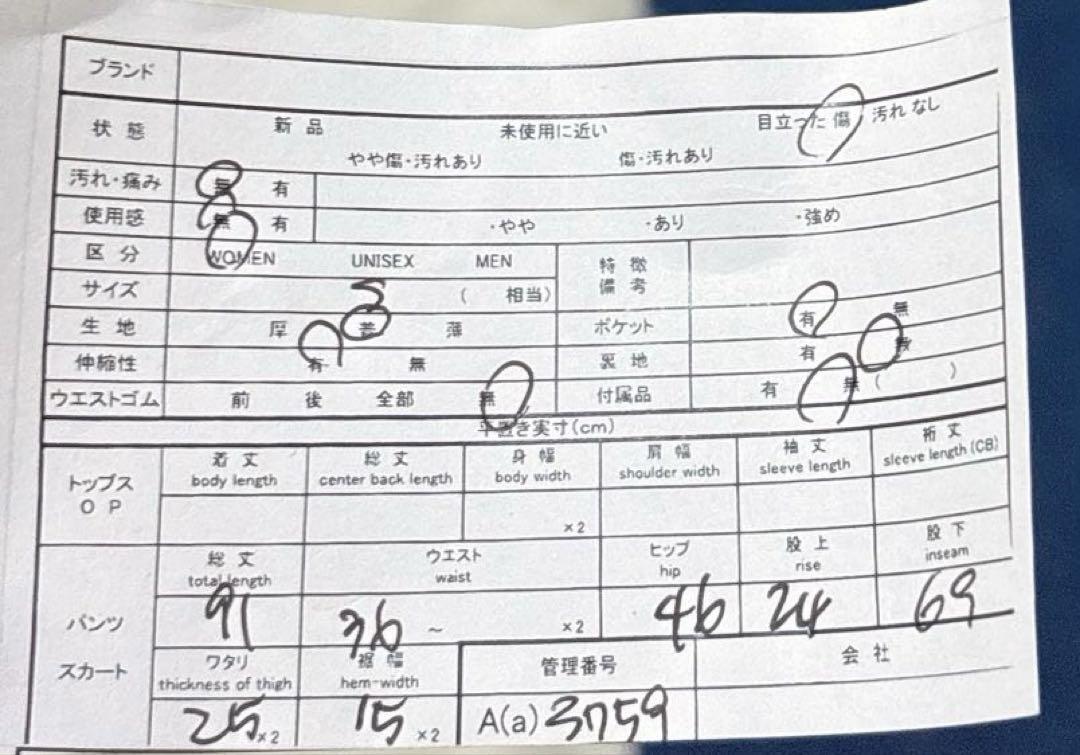 ブランド
状態 新品 未使用に近い 目立った傷 汚れなし
やや傷・汚れあり 傷・汚れあり
汚れ・痛み 無 有
使用感 無 有 ・やや ・あり ・強め
区分 WOMEN UNISEX MEN 特徴
備考
サイズ S ( 相当)
生地 厚 普 薄 ポケット 有 無
伸縮性 有 無 裏地 有 無
ウエストゴム 前 後 全部 無 付属品 有 無 ( )
平置き実寸(cm)
トップス
OP
着丈 総丈 身幅 肩幅 袖丈 裄丈
body length center back length body width shoulder width sleeve length sleeve length (CB)
×2
パンツ
スカート
総丈 ウエスト ヒップ 股上 股下
total length waist hip rise inseam
91 36 ~ ×2 46 24 69
ワタリ 裾幅 管理番号 会社
thickness of thigh hem-width
25 ×2 15 ×2 A(a) 3759